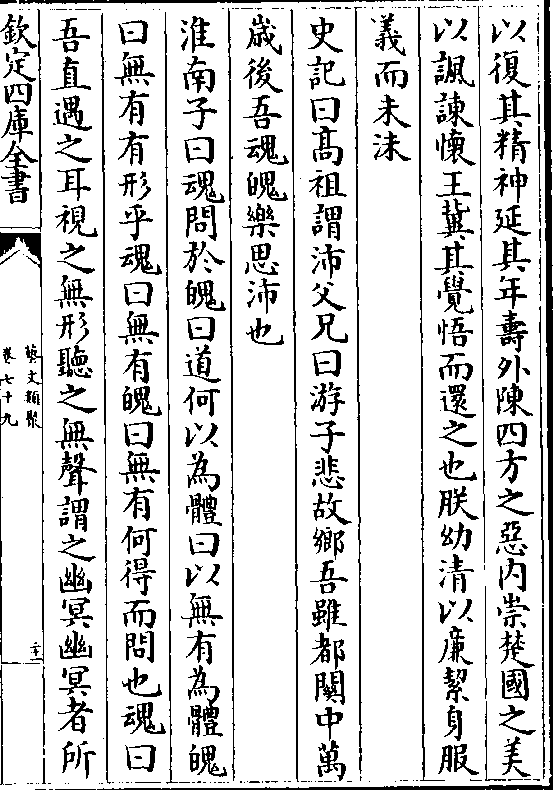 以復其精神延其年壽外陳四方之惡内崇楚國之美
以諷諫懷王冀其覺悟而還之也朕幼清以廉絜身服
義而未沬
史記曰髙祖謂沛父兄曰游子悲故鄉吾雖都關中萬
歳後吾魂魄樂思沛也
淮南子曰魂問於魄曰道何以為體曰以無有為體魄
曰無有有形乎魂曰無有魄曰無有何得而問也魂曰
吾直遇之耳視之無形聽之無聲謂之幽冥幽冥者所
欽定四庫全書
藝文類聚
卷七十九